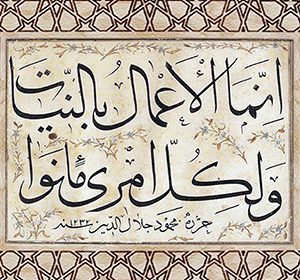 اِنّما الاَعمال بالنّيات
ولكلّ امرىٔ مانوا
حرره محمود جلال الدين سنه ١٢٣٢